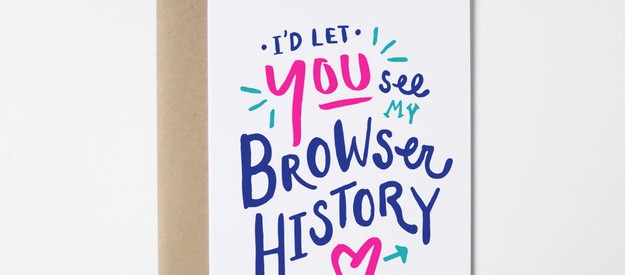 I'D LET
YOU see
MY
BROWSer
HISTORY